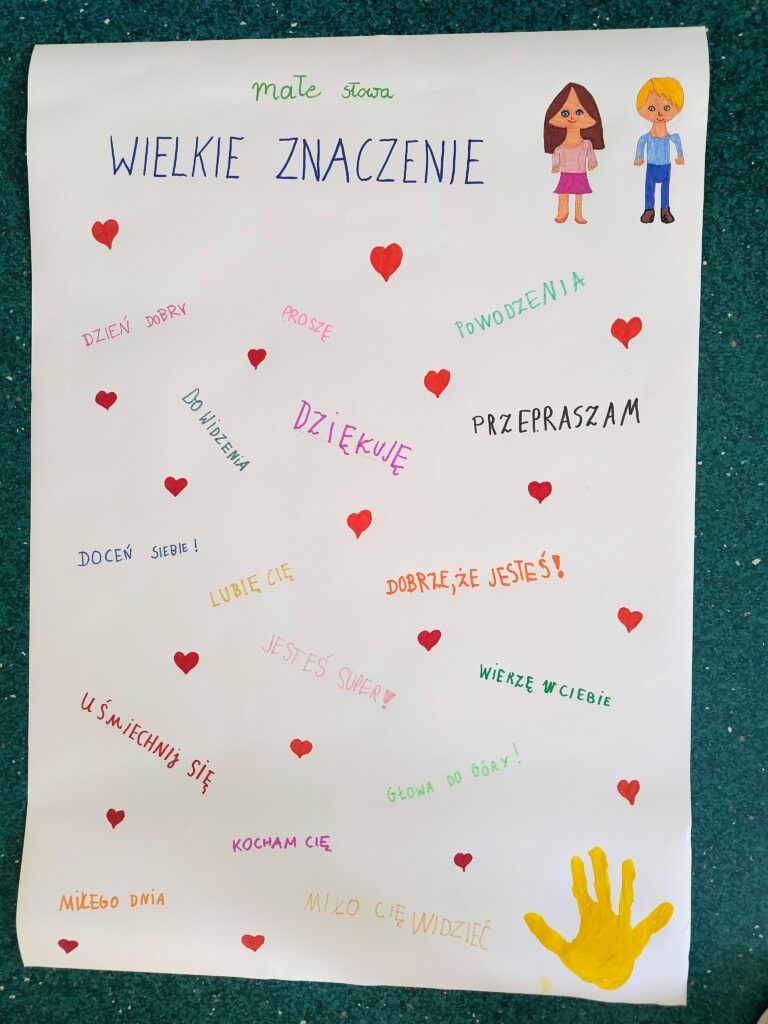 małe słowa
WIELKIE ZNACZENIE
DZIEŃ DOBRY
PROSZĘ
POWODZENIA
DO WIDZENIA
DZIĘKUJĘ
PRZEPRASZAM
DOCEŃ SIEBIE!
LUBIĘ CIĘ
DOBRZE, ŻE JESTEŚ!
JESTEŚ SUPER!
WIERZĘ W CIEBIE
UŚMIECHNIJ SIĘ
GŁOWA DO GÓRY!
KOCHAM CIĘ
MIŁEGO DNIA
MIŁO CIĘ WIDZIEĆ